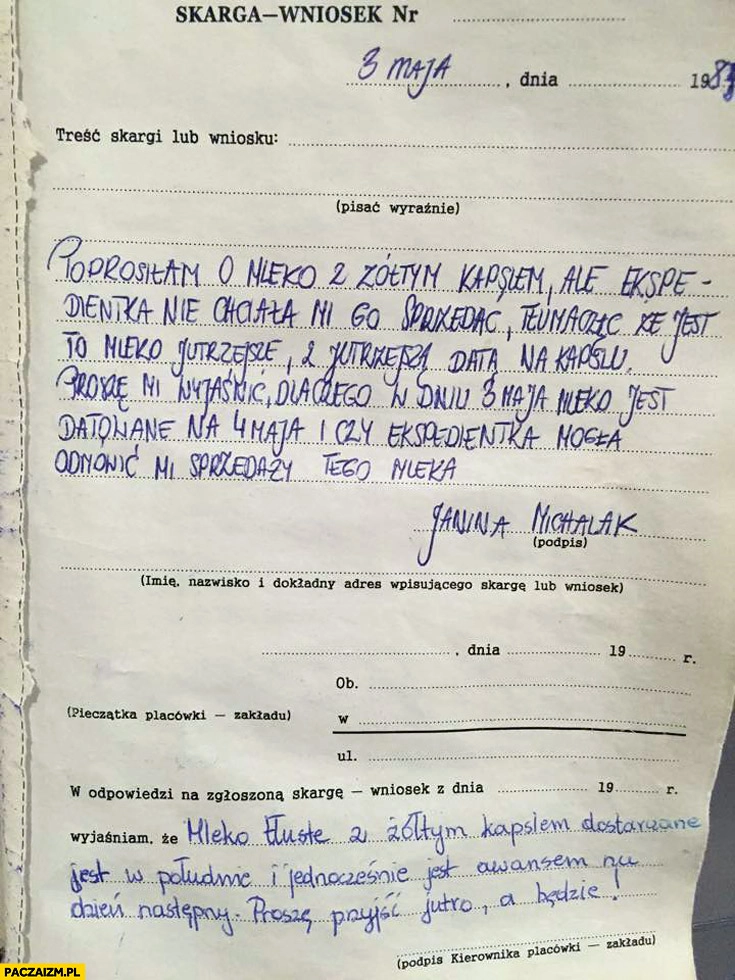 SKARGA—WNIOSEK Nr
3 MAJA, dnia 198
Treść skargi lub wniosku:
(pisać wyraźnie)
POPROSIŁAM O MLEKO Z ŻÓŁTYM KAPSLEM, ALE EKSPE-
DIENTKA NIE CHCIAŁA MI GO SPRZEDAĆ, TŁUMACZĄC ŻE JEST
TO MLEKO JUTRZEJSZE, Z JUTRZEJSZĄ DATĄ NA KAPSLU.
PROSZĘ MI WYJAŚNIĆ, DLACZEGO W DNIU 3 MAJA MLEKO JEST
DATOWANE NA 4 MAJA I CZY EKSPEDIENTKA MOGŁA
ODMÓWIĆ MI SPRZEDAŻY TEGO MLEKA
JANINA MICHALAK
(podpis)
(Imię, nazwisko i dokładny adres wpisującego skargę lub wniosek)
, dnia 19 r.
Ob.
(Pieczątka placówki — zakładu)
w
ul.
W odpowiedzi na zgłoszoną skargę — wniosek z dnia 19 r.
wyjaśniam, że Mleko tłuste z żółtym kapslem dostarczane
jest w południe i jednocześnie jest awansem na
dzień następny. Proszę przyjść jutro, a będzie!
(podpis Kierownika placówki — zakładu)
PACZAIZM.PL